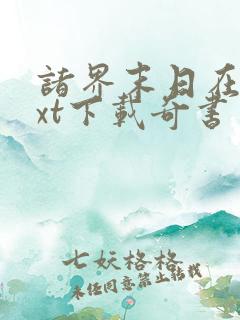 諸界末日在
xt下載奇書
七妖格格
未經同意禁止轉載